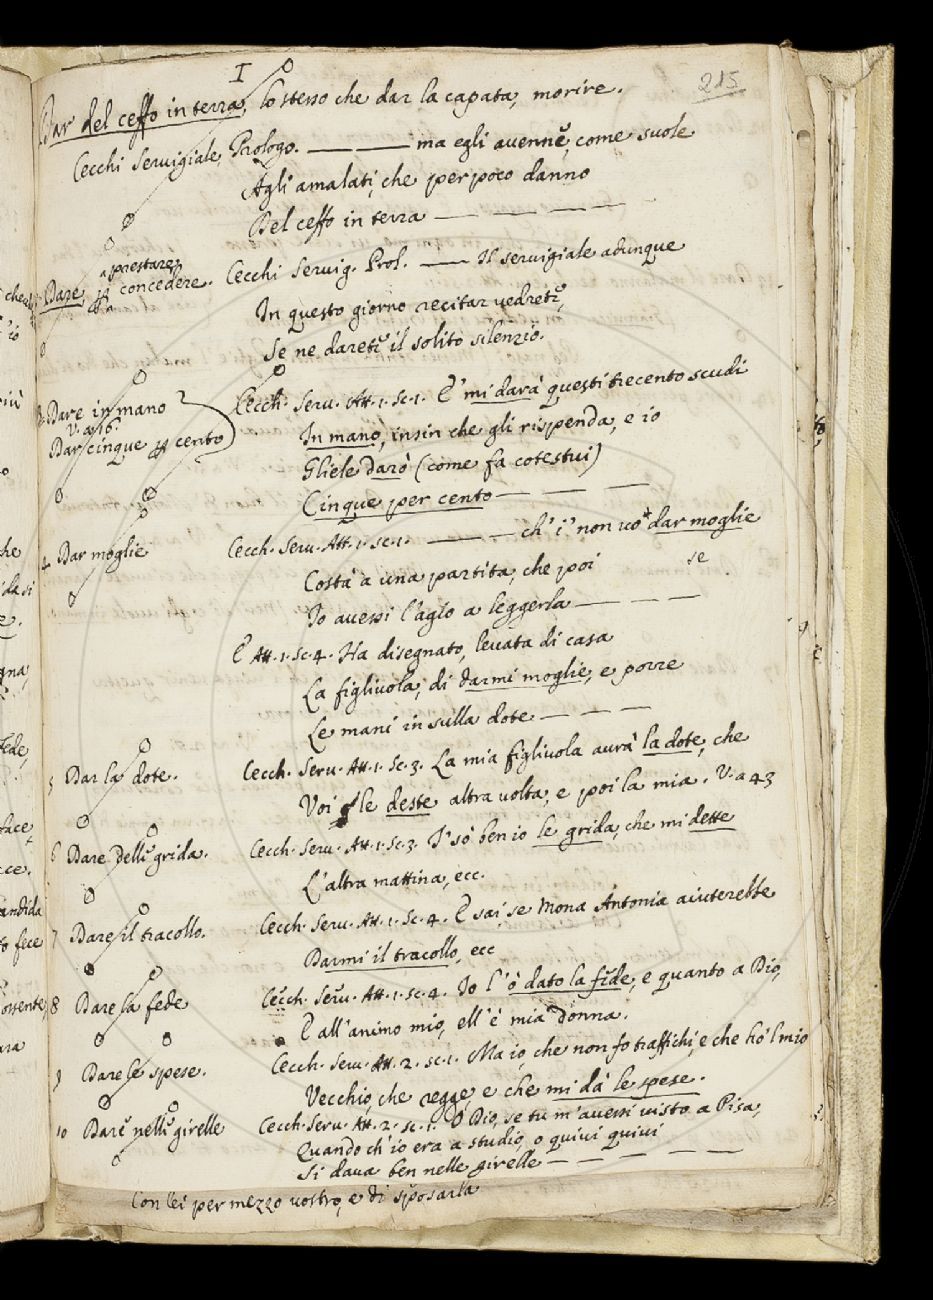 I
215
Dar del ceffo in terra, lo stesso che dar la capata, morire.
Cecchi Servigiale, Prologo. ——— ma egli avenne, come suole
Agli amalati, che per poco danno
Del ceffo in terra — — — —
Dare, p concedere. Cecchi Servig. Prol. — Il servigiale adunque
a prestare,
In questo giorno recitar vedrete,
Se ne darete il solito silenzio.
3 Dare in mano Cecch. Serv. Att. 1. Sc. 1. E' mi darà questi trecento scudi
V. a 16.
In mano, insin che gli rispenda, e io
Dar cinque p cento
Gliele darò (come fa cotestui)
Cinque per cento — — — —
4 Dar moglie Cecch. Serv. Att. 1. Sc. 1. — — ch' i' non vo' dar moglie
Costà a una partita, che poi se
Io avessi l'agio a leggerla — — —
E Att. 1. Sc. 4. Ha disegnato, levata di casa
La figliuola, di darmi moglie, e porre
Le mani in sulla dote — — —
5 Dar la dote. Cecch. Serv. Att. 1. Sc. 3. La mia figliuola avrà la dote, che
Voi le deste altra volta, e poi la mia. V. a 43
6 Dare delle grida. Cecch. Serv. Att. 1. Sc. 3. I' sò ben io le grida, che mi dette
L'altra mattina, ecc.
7 Dare il tracollo. Cecch. Serv. Att. 1. Sc. 4. E sai se Mona Antonia aiuterebbe
Darmi il tracollo, ecc
8 Dare la fede Cecch. Serv. Att. 1. Sc. 4. Io l'ò dato la fede, e quanto a Dio,
E all'animo mio, ell'è mia donna.
9 Dare le spese. Cecch. Serv. Att. 2. Sc. 1. Ma io, che non fo traffichi, e che hò 'l mio
Vecchio, che regge, e che mi dà le spese.
10 Dare nelle girelle Cecch. Serv. Att. 2. Sc. 1. O Dio, se tu m'avessi visto a Pisa,
Quando ch'io era a studio, o quivi quivi
Si dava ben nelle girelle — — — — —
Con lei per mezzo vostro, e di sposarla